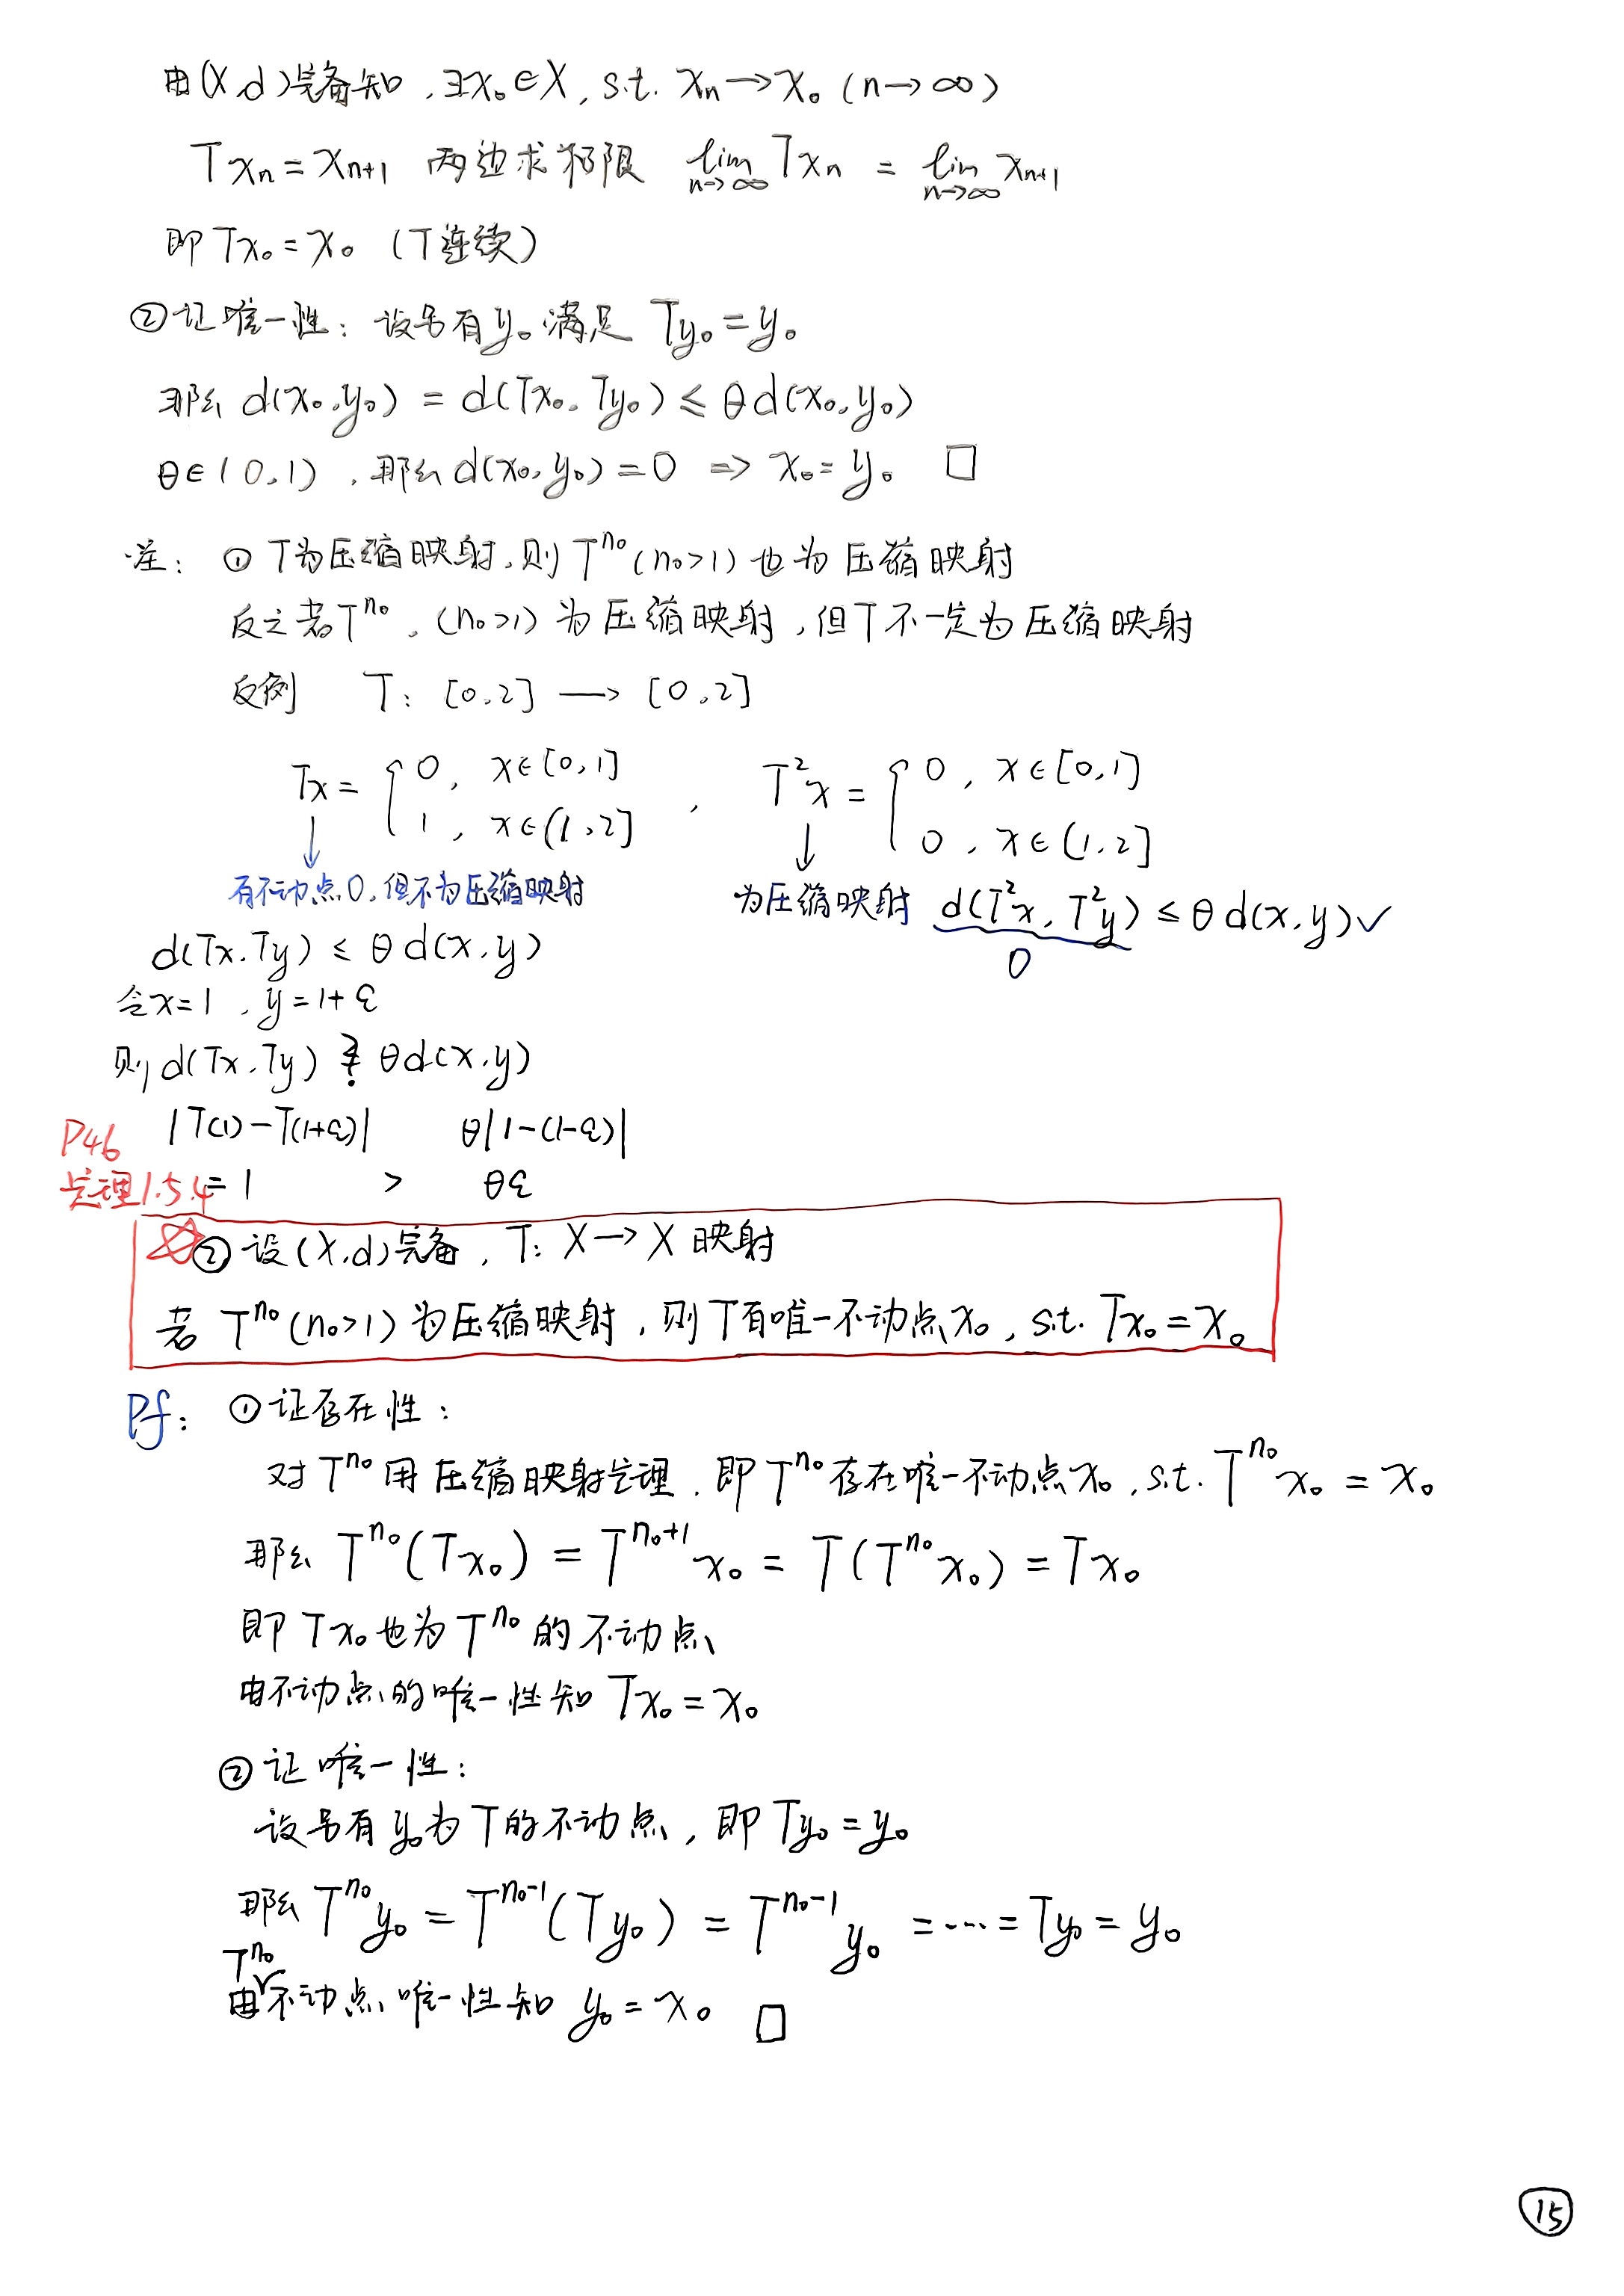 由(X,d)完备知,∃x₀∈X, s.t. xₙ→x₀ (n→∞)
Txₙ=xₙ₊₁ 两边求极限 lim_{n→∞} Txₙ = lim_{n→∞} xₙ₊₁
即 Tx₀=x₀ (T连续)
②证唯一性: 设另有y₀满足 Ty₀=y₀
那么 d(x₀,y₀) = d(Tx₀,Ty₀) ≤ θd(x₀,y₀)
θ∈(0,1),那么d(x₀,y₀)=0 => x₀=y₀ □
注: ① T为压缩映射,则 T^{n₀}(n₀>1)也为压缩映射
反之若T^{n₀},(n₀>1)为压缩映射,但T不一定为压缩映射
反例 T: [0,2] → [0,2]
Tx = { 0, x∈[0,1] ; 1, x∈(1,2] , T²x = { 0, x∈[0,1] ; 0, x∈(1,2]
↓ ↓
有不动点0,但不为压缩映射 为压缩映射 d(T²x,T²y) ≤ θd(x,y)✓
0
d(Tx,Ty) ≤ θd(x,y)
令x=1, y=1+ε
则d(Tx,Ty) ≰ θd(x,y)
|T(1)-T(1+ε)| θ|1-(1-ε)|
P46
定理1.5.4 =1 > θε
☆②设(X,d)完备, T: X→X 映射
若 T^{n₀}(n₀>1)为压缩映射,则T有唯一不动点x₀, s.t. Tx₀=x₀
Pf: ①证存在性:
对T^{n₀}用压缩映射定理,即T^{n₀}存在唯一不动点x₀, s.t. T^{n₀}x₀=x₀
那么 T^{n₀}(Tx₀) = T^{n₀+1}x₀ = T(T^{n₀}x₀) = Tx₀
即 Tx₀也为T^{n₀}的不动点
由不动点的唯一性知 Tx₀=x₀
②证唯一性:
设另有y₀为T的不动点,即Ty₀=y₀
那么 T^{n₀}y₀ = T^{n₀-1}(Ty₀) = T^{n₀-1}y₀ =⋯= Ty₀ = y₀
T^{n₀}
由∨不动点唯一性知 y₀=x₀ □
⑮